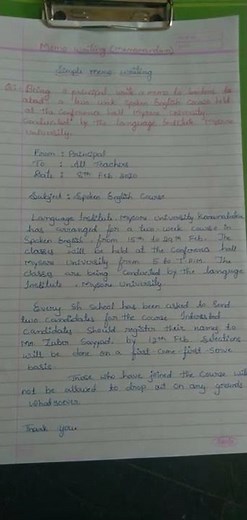 Memo writing (Memorandum)
Simple memo writing
Q1. Being a principal write a memo to teachers
about a two week Spoken English Course held
at the Conference hall Mysore University
Conducted by the Language Institute Mysore
University.
From : Principal
To : All Teachers
Date : 8th Feb 2020
Subject : Spoken English Course
Language Institute, Mysore University
has arranged for a two week course in
Spoken English from 15th to 29th Feb. The
classes will be held at the Conference hall
Mysore University from 5 to 7 P.M. The
classes are being conducted by the language
Institute, Mysore University.
Every school has been asked to send
two candidates for the course. Interested
Candidates should register their name to
Mr. Zuber Sayyad by 12th Feb. Selections
will be done on a first come-first serve
basis.
Those who have joined the Course will
not be allowed to drop out on any grounds
whatsoever.
Thank you